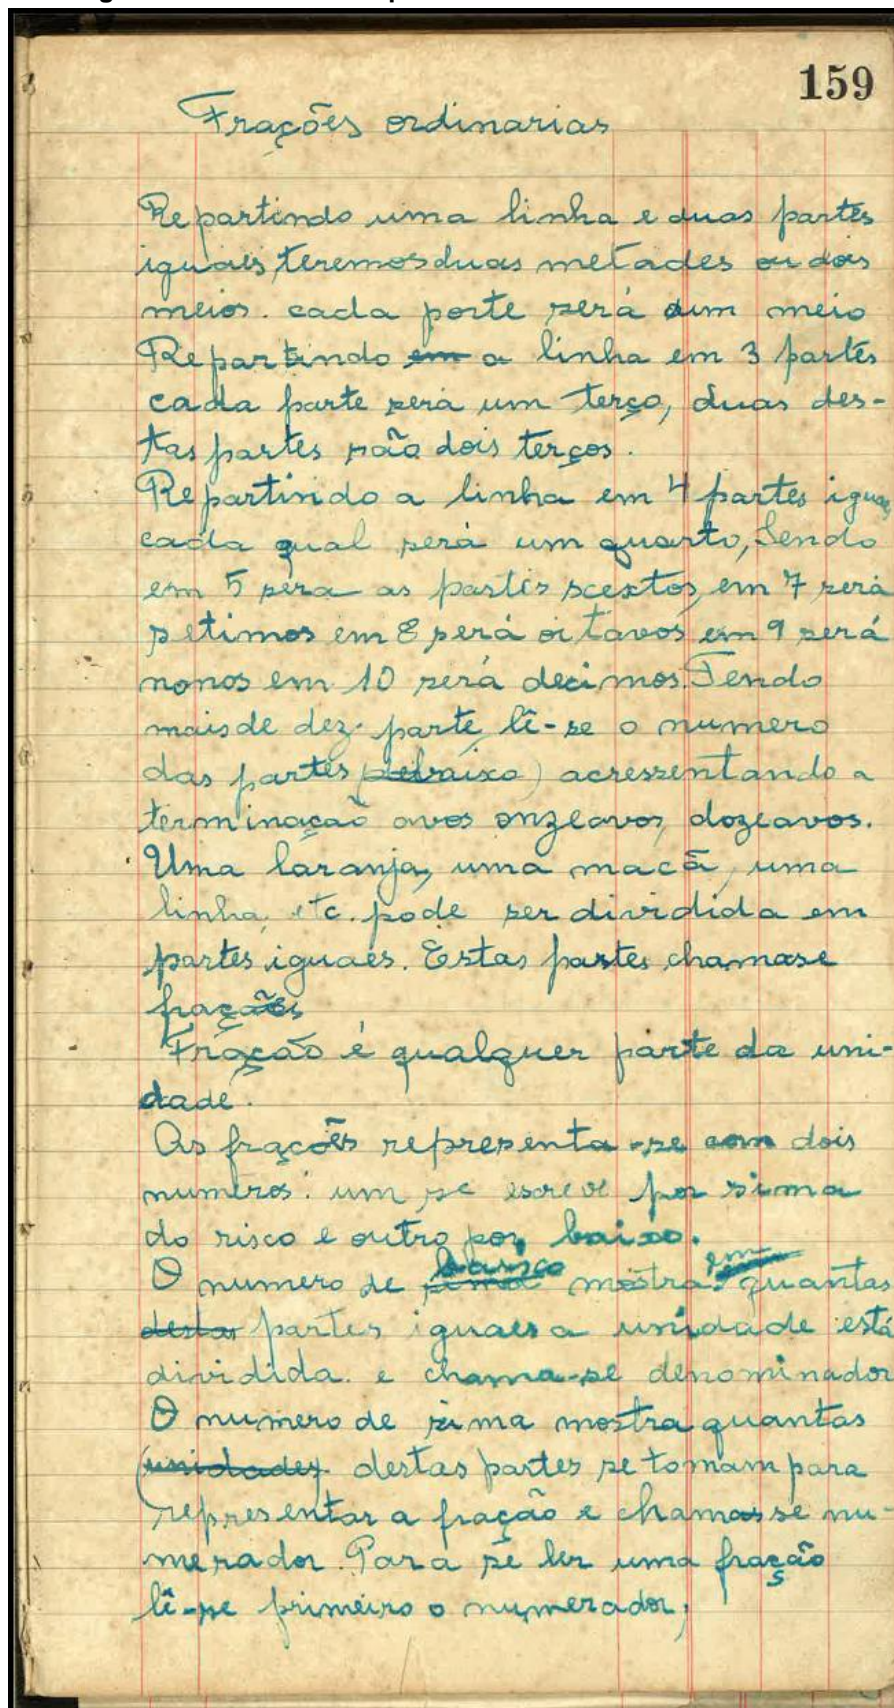 159
Frações ordinarias
Repartindo uma linha e duas partes
iguaes, teremos duas metades ou dois
meios. cada porte será um meio
Repartindo em a linha em 3 partes
cada parte será um terço, duas des-
tas partes são dois terços.
Repartindo a linha em 4 partes igua
cada qual será um quarto, Sendo
em 5 séra as partes scextos, em 7 será
setimos em 8 será oitavos em 9 será
nonos em 10 será decimos. Tendo
mais de dez parte, lê-se o numero
das partes (debaixo) acressentando a
terminação avos onzeavos, dozeavos.
Uma laranja, uma macã, uma
linha, etc. pode ser dividida em
partes iguaes. Estas partes chamase
frações
Fração é qualquer parte da uni-
dade.
As frações representa-se com dois
numeros: um se escreve por sima
do risco e outro por baixo.
O numero de sima baixo mostra em quantas
destas partes iguaes a unidade está
dividida. e chama-se denominador
O numero de sima mostra quantas
(unidades) destas partes se tomam para
representar a fração e chamasse nu-
merador. Para se ler uma fração
lê-se primeiro o numerador,